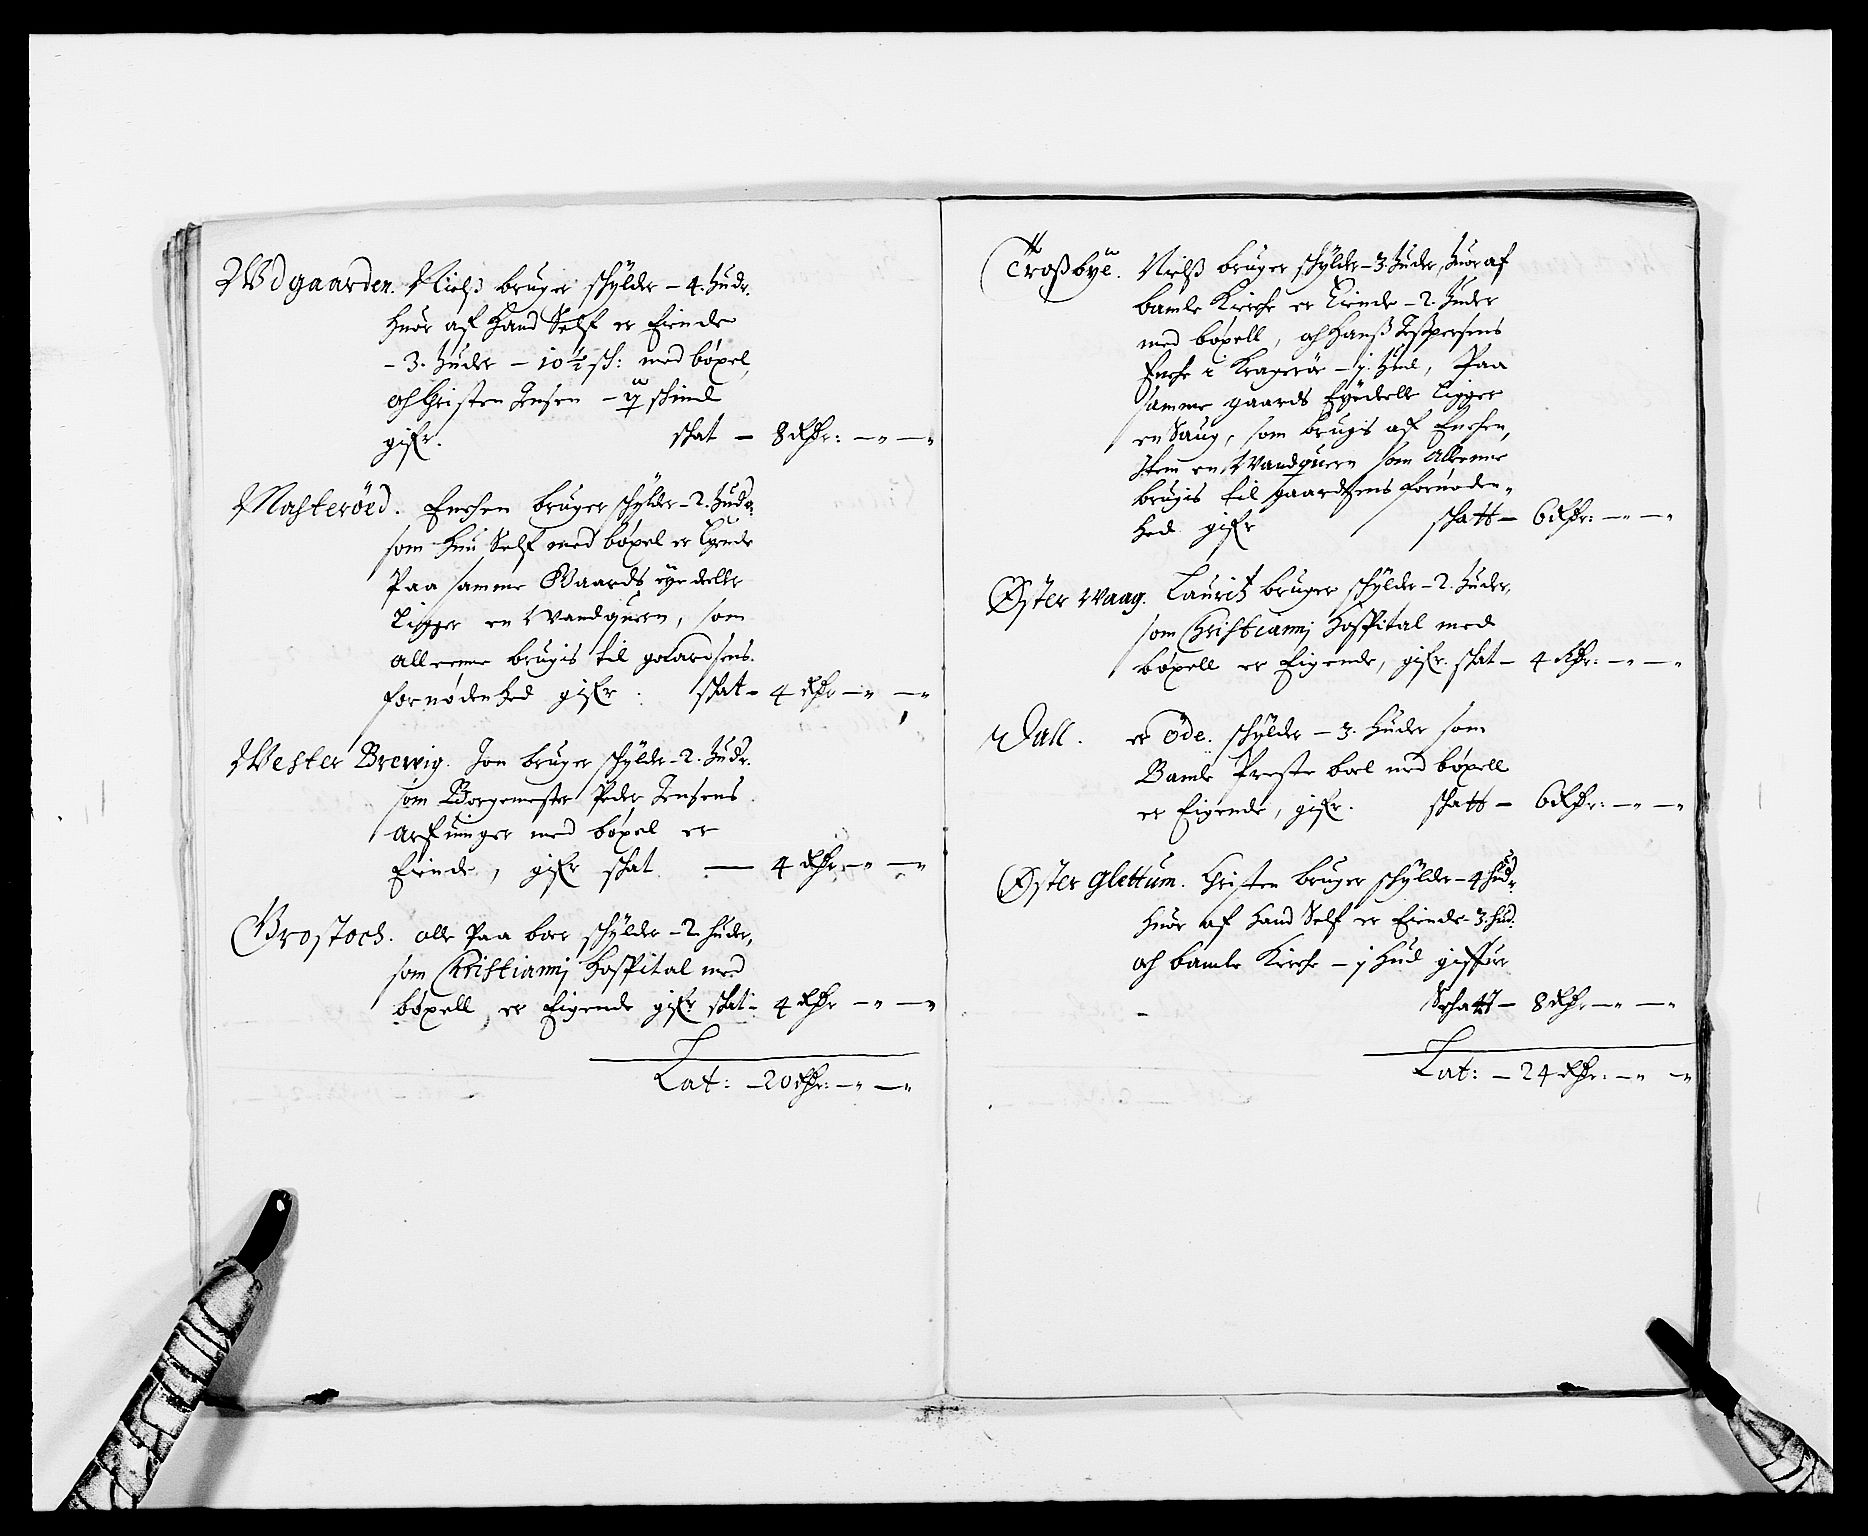 Wdgaarden. Nielß bruger schylder - 4. hudr.
huor af hand Self er Eiende
- 3. huder - 10½ sch: med böxel,
och Christen Jensen - skind
gifr. skat - 8 Rdr: -"- -"-
Masteröed. Enchen bruger schylder - 2. hudr.
som hun Self med böxel er Eyende
Paa samme Gaards eyedelle
Ligger en Wandquern, som
alleene brugis til gaardsens
fornödenhed gifr. skat - 4 Rdr -"- -"-
Wester Brewig. Jon bruger schylder - 2. hudr.
som Borgemester Peder Jensens
Arfuinger med böxel er
Eiende, gifr skat. - 4 Rdr -"- -"-
Brostoch. olle Paa boer schylder - 2 huder,
som Christianj Hospital med
böxell er Eigende gifr skat - 4 Rdr -"- -"-
Lat: - 20 Rdr: -"- -"-
Troßbye. Nielß bruger schylder - 3. huder, huor af
bamle Kirche er Eiende - 2. huder
med böxell, och Hanß Jespersens
Enche i Kragerör - j. hud, Paa
samme gaards Eyedelle Ligger
en Saug, som brugis af Enchen,
Item en Wandquern som alleenne
brugis til gaardsens fornöden-
hed gifr skatt - 6 Rdr: -"- -"-
Øster Waag. Lauritz bruger schylder - 2. huder,
som Christianj Hospital med
böxell er Eigende, gifr. skat - 4 Rdr: -"- -"-
Wall. er öde. schylder - 3. huder som
Bamle Preste boel med böxell
er Eigende, gifr. skatt - 6 Rdr: -"- -"-
Øster glettum. Christen bruger schylder - 4 hud.
huor af hand Self er Eiende - 3. hud.
och bamle Kirche - j hud giffuer
Schatt - 8 Rdr -"- -"-
Lat: - 24 Rdr: -"- -"-